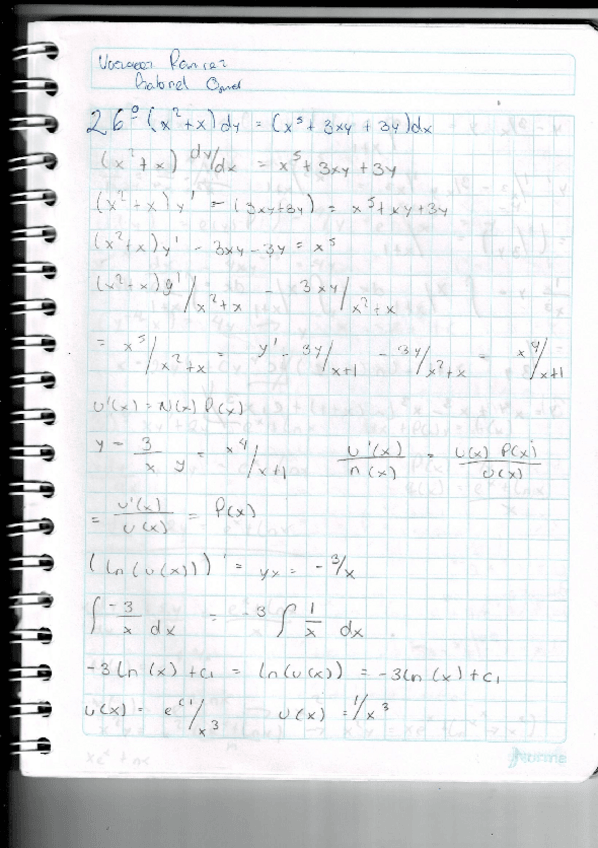 26° (x² + x) dy = (x⁵ + 3xy + 3y)dx
(x² + x) dy/dx = x⁵ + 3xy + 3y
(x² + x) y' - (3xy+3y) = x⁵ + xy + 3y
(x² + x) y' - 3xy - 3y = x⁵
(x² + x) y' / x² + x - 3xy / x² + x
= x⁵ / x² + x = y' - 3y / x+1 - 3y / x² + x = x⁴ / x+1
u'(x) = N(x) P(x)
y - 3/x y = x⁴ / x+1 u'(x)/n(x) = u(x) P(x)/u(x)
= u'(x)/u(x) = P(x)
(ln(u(x)))' = yx = -3/x
∫ -3/x dx = -3 ∫ 1/x dx
-3 ln(x) + c₁ = ln(u(x)) = -3 ln(x) + c₁
u(x) = e^c₁ / x³ u(x) = 1/x³